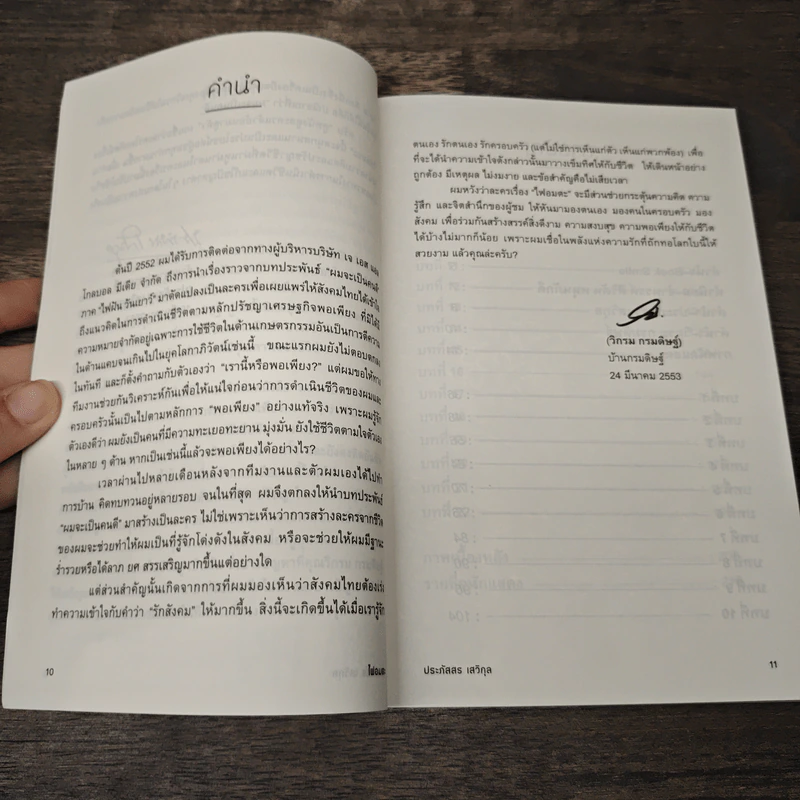 คำนำ
ต้นปี 2552 ผมได้รับการติดต่อจากทางผู้บริหารบริษัท เจ เอส แอล
โกลบอล มีเดีย จำกัด ถึงการนำเรื่องราวจากบทประพันธ์ “ผมจะเป็นคนดี
ภาค “ไฟฝัน วันเยาว์” มาดัดแปลงเป็นละครเพื่อเผยแพร่ให้สังคมไทยได้เข้าใจ
ถึงแนวคิดในการดำเนินชีวิตตามหลักปรัชญาเศรษฐกิจพอเพียง ที่มิได้มี
ความหมายจำกัดอยู่เฉพาะการใช้ชีวิตในด้านเกษตรกรรมอันเป็นการตีความ
ในด้านแคบจนเกินไปในยุคโลกาภิวัตน์เช่นนี้ ขณะแรกผมยังไม่ตอบตกลง
ในทันที และก็ตั้งคำถามกับตัวเองว่า “เรานี้หรือพอเพียง?” แต่ผมขอให้ทาง
ทีมงานช่วยกันวิเคราะห์กันเพื่อให้แน่ใจก่อนว่าการดำเนินชีวิตของผมและ
ครอบครัวนั้นเป็นไปตามหลักการ “พอเพียง” อย่างแท้จริง เพราะผมรู้จัก
ตัวเองดีว่า ผมยังเป็นคนที่มีความทะเยอทะยาน มุ่งมั่น ยังใช้ชีวิตตามใจตัวเอง
ในหลาย ๆ ด้าน หากเป็นเช่นนี้แล้วจะพอเพียงได้อย่างไร?
เวลาผ่านไปหลายเดือนหลังจากทีมงานและตัวผมเองได้ไปทำ
การบ้าน คิดทบทวนอยู่หลายรอบ จนในที่สุด ผมจึงตกลงให้นำบทประพันธ์
“ผมจะเป็นคนดี” มาสร้างเป็นละคร ไม่ใช่เพราะเห็นว่าการสร้างละครจากชีวิต
ของผมจะช่วยทำให้ผมเป็นที่รู้จักโด่งดังในสังคม หรือจะช่วยให้ผมมีฐานะ
ร่ำรวยหรือได้ลาภ ยศ สรรเสริญมากขึ้นแต่อย่างใด
แต่ส่วนสำคัญนั้นเกิดจากการที่ผมมองเห็นว่าสังคมไทยต้องเร่ง
ทำความเข้าใจกับคำว่า “รักสังคม” ให้มากขึ้น สิ่งนี้จะเกิดขึ้นได้เมื่อเรารู้จัก
10
ไฟอมตะ
ตนเอง รักตนเอง รักครอบครัว (แต่ไม่ใช่การเห็นแก่ตัว เห็นแก่พวกพ้อง) เพื่อ
ที่จะได้นำความเข้าใจดังกล่าวนั้นมาวางเข็มทิศให้กับชีวิต ให้เดินหน้าอย่าง
ถูกต้อง มีเหตุผล ไม่งมงาย และข้อสำคัญคือไม่เสียเวลา
ผมหวังว่าละครเรื่อง “ไฟอมตะ” จะมีส่วนช่วยกระตุ้นความคิด ความ
รู้สึก และจิตสำนึกของผู้ชม ให้หันมามองตนเอง มองคนในครอบครัว มอง
สังคม เพื่อร่วมกันสร้างสรรค์สิ่งดีงาม ความสงบสุข ความพอเพียงให้กับชีวิต
ได้บ้างไม่มากก็น้อย เพราะผมเชื่อในพลังแห่งความรักที่ถักทอโลกใบนี้ให้
สวยงาม แล้วคุณล่ะครับ?
(วิกรม กรมดิษฐ์)
บ้านกรมดิษฐ์
24 มีนาคม 2553
ประภัสสร เสวิกุล
11